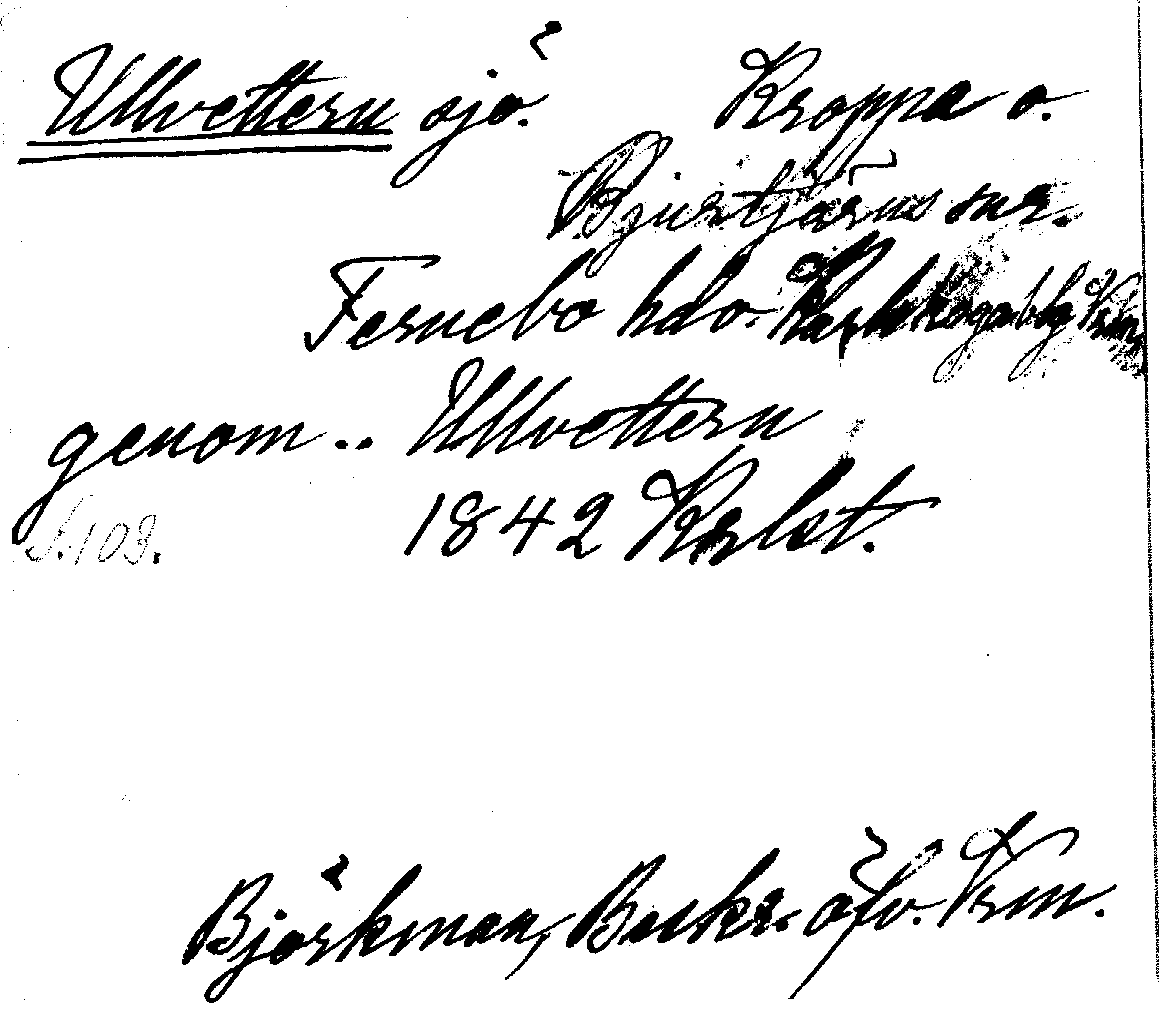 Ullvettern sjö. Kroppa o.
Bjurtjärns snr.
Fernebo hdo. Karlskoga blg Vrm.
genom .. Ullvettern
S. 103. 1842 Krlst.
Björkman, Beskr. öfv. Vrm.